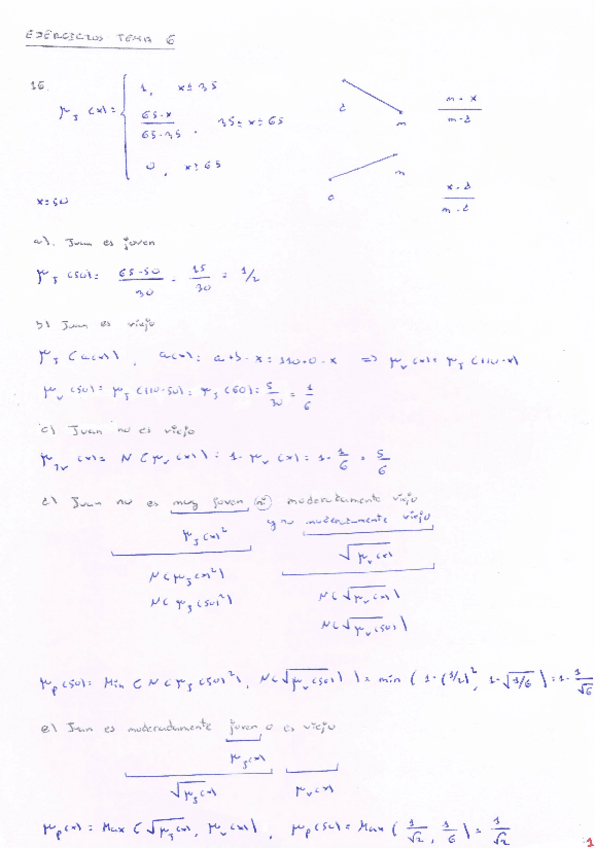 EJERCICIOS TEMA 6
16.
μ_J(x) = { 1, x ≤ 35
(65-x)/(65-35), 35 ≤ x ≤ 65
0, x ≥ 65
a m (m-x)/(m-a)
a m (x-a)/(m-a)
x = 50
a). Juan es joven
μ_J(50) = (65-50)/30 = 15/30 = 1/2
b) Juan es viejo
μ_J(a(x)), a(x) = a+b-x = 110+0-x => μ_v(x) = μ_J(110-x)
μ_v(50) = μ_J(110-50) = μ_J(60) = 5/30 = 1/6
c) Juan no es viejo
μ_¬v(x) = N(μ_v(x)) = 1-μ_v(x) = 1-1/6 = 5/6
d) Juan no es muy joven ni moderadamente viejo
y no moderadamente viejo
μ_J(x)² √μ_v(x)
N(μ_J(x)²) N(√μ_v(x))
N(μ_J(50)²) N(√μ_v(50))
μ_p(50) = Min(N(μ_J(50)²), N(√μ_v(50))) = min(1-(1/2)², 1-√1/6) = 1-1/√6
e) Juan es moderadamente joven o es viejo
μ_J(x)
√μ_J(x) μ_v(x)
μ_p(x) = Max(√μ_J(x), μ_v(x)), μ_p(50) = Max(1/√2, 1/6) = 1/√2
1